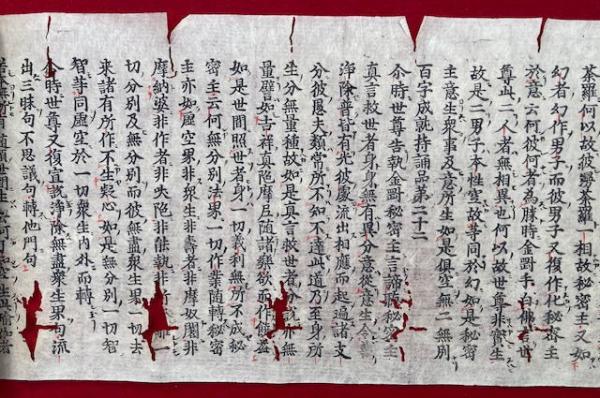 荼羅何以故彼曼荼羅一相故秘密主又如
幻者幻作男子而彼男子又復作化秘密主
於意云何彼何者為勝時金剛手白佛言世
尊此二人者無相異也何以故世尊非實生
故是二男子本性空故等同於幻如是秘密
主意生衆事及意所生如是俱空無二無別
百字成就持誦品第二十二
尒時世尊告執金剛秘密主言諦聽秘密主
真言救世者身身無有異分意從意生令善
淨除普皆有光彼處流出相應而起遍諸支
分彼愚夫類常所不知不達此道乃至身所
生分無量種故如是真言救世者分說亦無
量譬如吉祥真陁摩尼隨諸樂欲而作饒益
如是世間照世者身一切義利無所不成秘
密主云何無分別法界一切作業隨轉秘密
主亦如虛空界非衆生非壽者非摩奴闍非
摩納婆非作者非
切分別及無分別而彼無盡衆生界一切去
來諸有所作不生疑心如是無分別一切智
智等同虛空於一切衆生內外而轉
尒時世尊又復宣說淨除無盡衆生界句流
出三昧句不思議句轉他門句